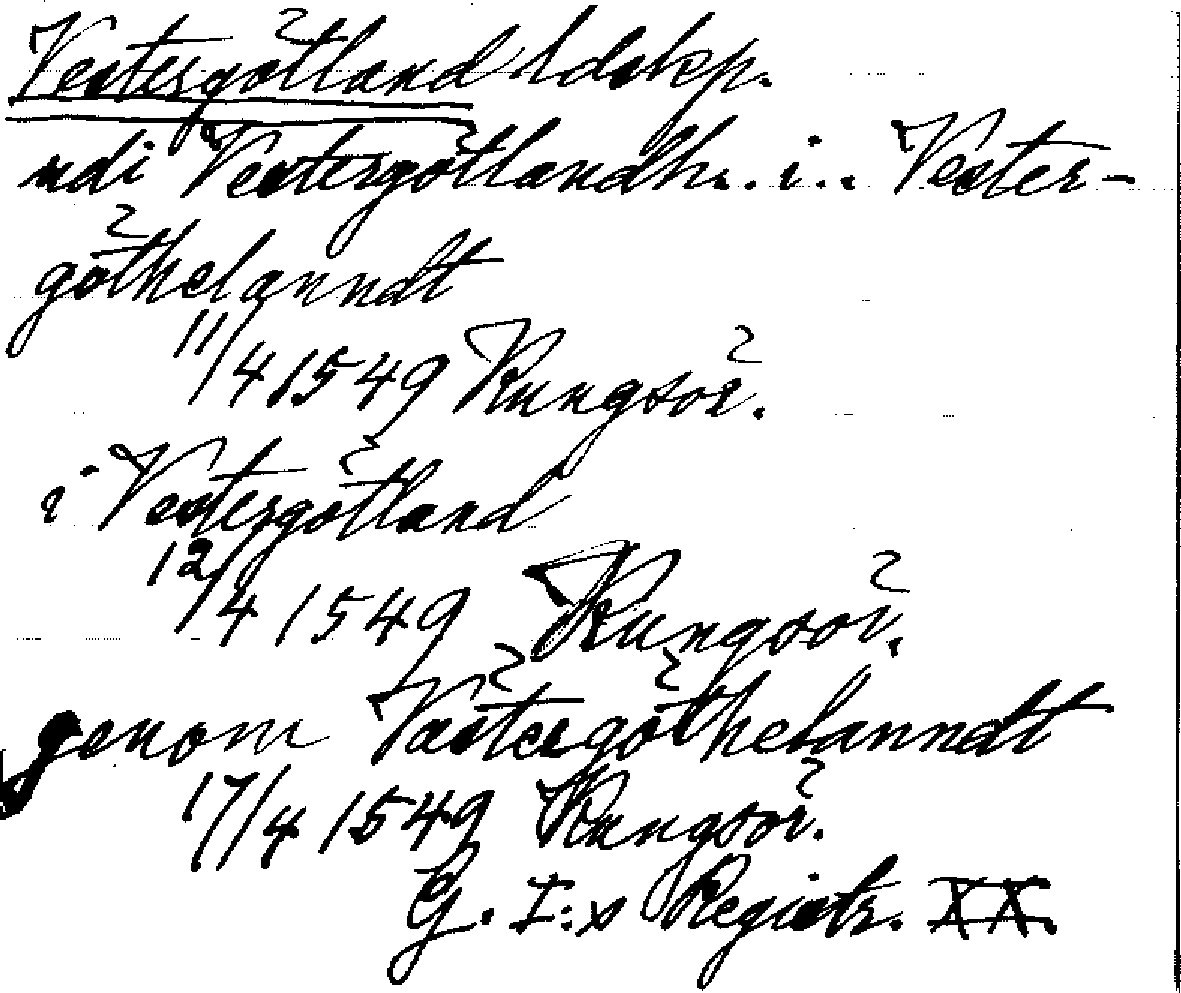 Vestergötland ldskp.
udi Vestergötlandh. . i. . Vester-
göthelanndt
11/4 1549 Kungsör.
i Vestergötland
12/4 1549 Kungsör.
genom Västergöthelanndt
17/4 1549 Kungsör.
G. I:s Registr. XX.